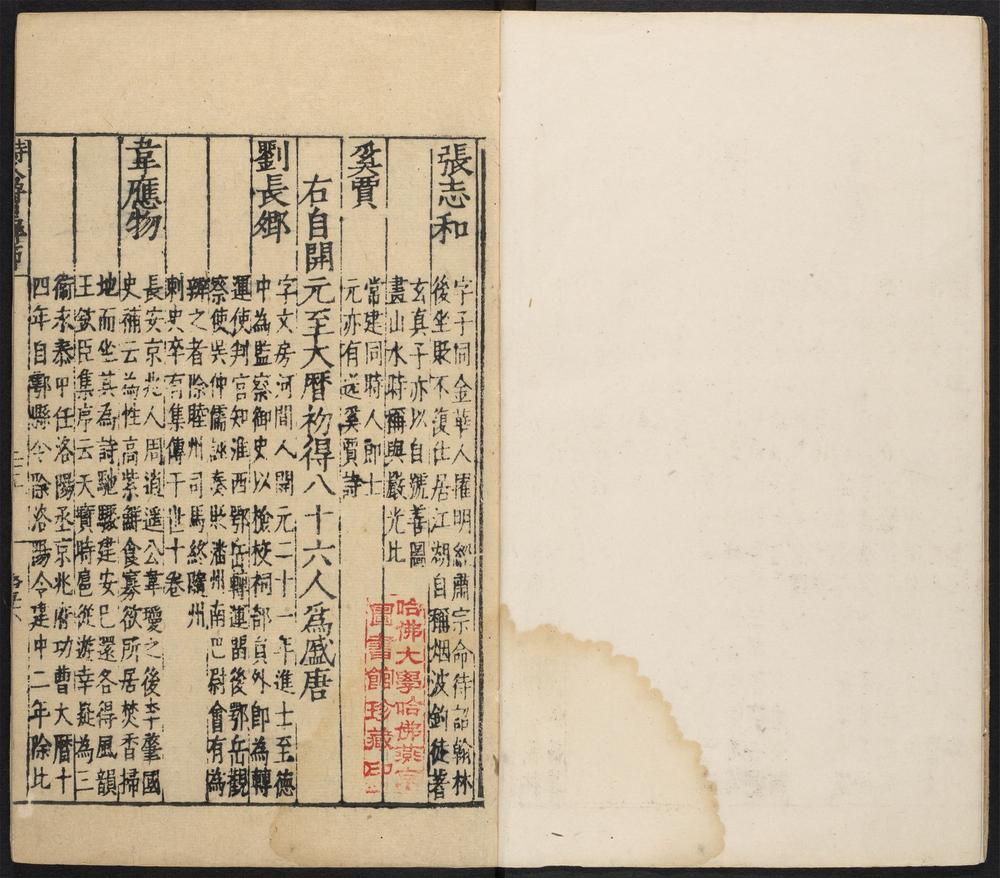 張志和
字子同金華人擢明經肅宗命待詔翰林
後坐貶不復仕居江湖自稱烟波釣徒著
玄真子亦以自號善圖
畫山水時稱與嚴光比
奚賈
常建同時人即士
元亦有送奚賈詩
右自開元至大曆初得八十六人爲盛唐
劉長卿
字文房河間人開元二十一年進士至德
中為監察御史以檢校祠部員外即為轉
運使判官知淮西鄂岳轉運留後鄂岳觀
察使吳仲儒誣奏貶潘州南巴尉會有為
辨之者除睦州司馬終隨州
刺史卒有集傳于世十卷
韋應物
長安京兆人周逍遥公韋瓊之後李肇國
史補云為性高㓗鮮食寡欲所居焚香掃
地而坐其為詩馳驟建安已還各得風韻
王欽臣集序云天寳時扈從遊幸疑為三
衞永泰中任洛陽丞京兆府功曹大曆十
四年自鄠縣令除洛陽令建中二年除比
哈佛大學哈佛燕京
圖書館珍藏印